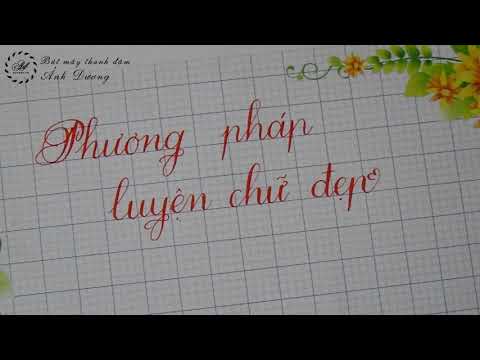 Bút máy thanh đậm
Ánh Dương
Phương pháp
luyện chữ đẹp